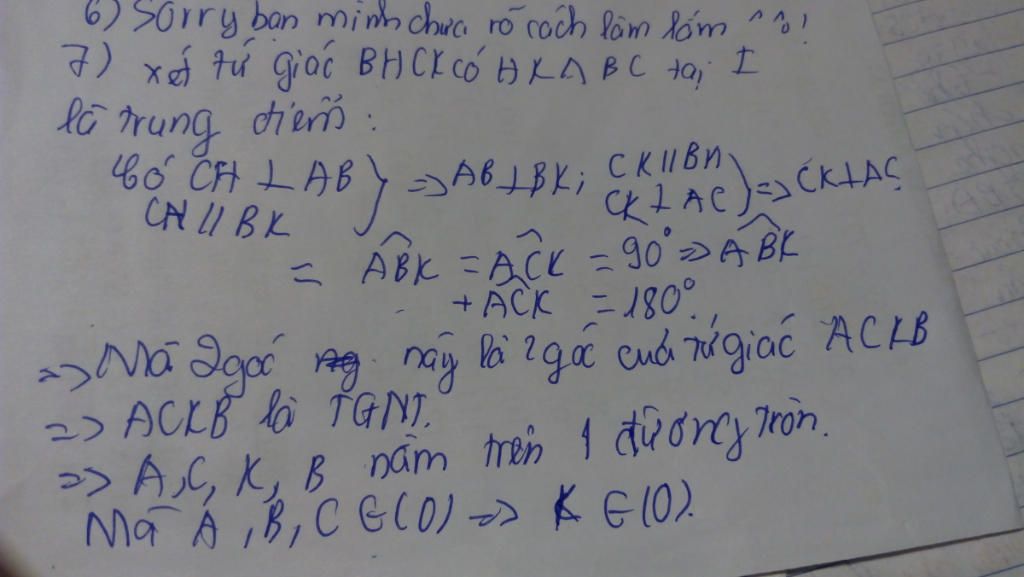 6) Sorry bạn mình chưa rõ cách làm lắm ^^!
7) xét tứ giác BHCK có HK ∩ BC tại I
là trung điểm :
Có CH ⊥ AB } => AB ⊥ BK ; CK // BH } => CK ⊥ AC
CH // BK CK ⊥ AC
= ABK = ACK = 90° => ABK
+ ACK = 180°.
=> Mà 2 góc này là 2 góc của tứ giác ACKB
=> ACKB là TGNT.
=> A, C, K, B nằm trên 1 đường tròn.
Mà A, B, C ∈ (O) => K ∈ (O).